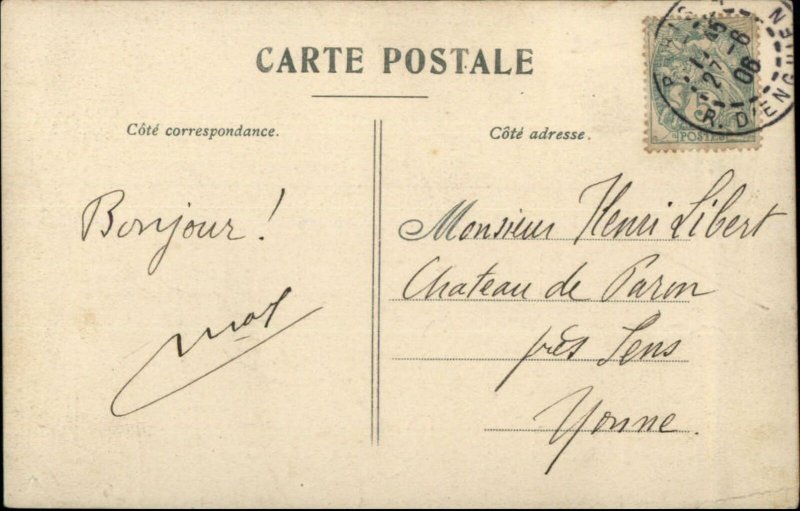 CARTE POSTALE
Côté correspondance.
Côté adresse.
POSTES
R. D'ENGHIEN
27 -6
06
Bonjour !
Monsieur Henri Libert
Chateau de Paron
près Sens
Yonne.